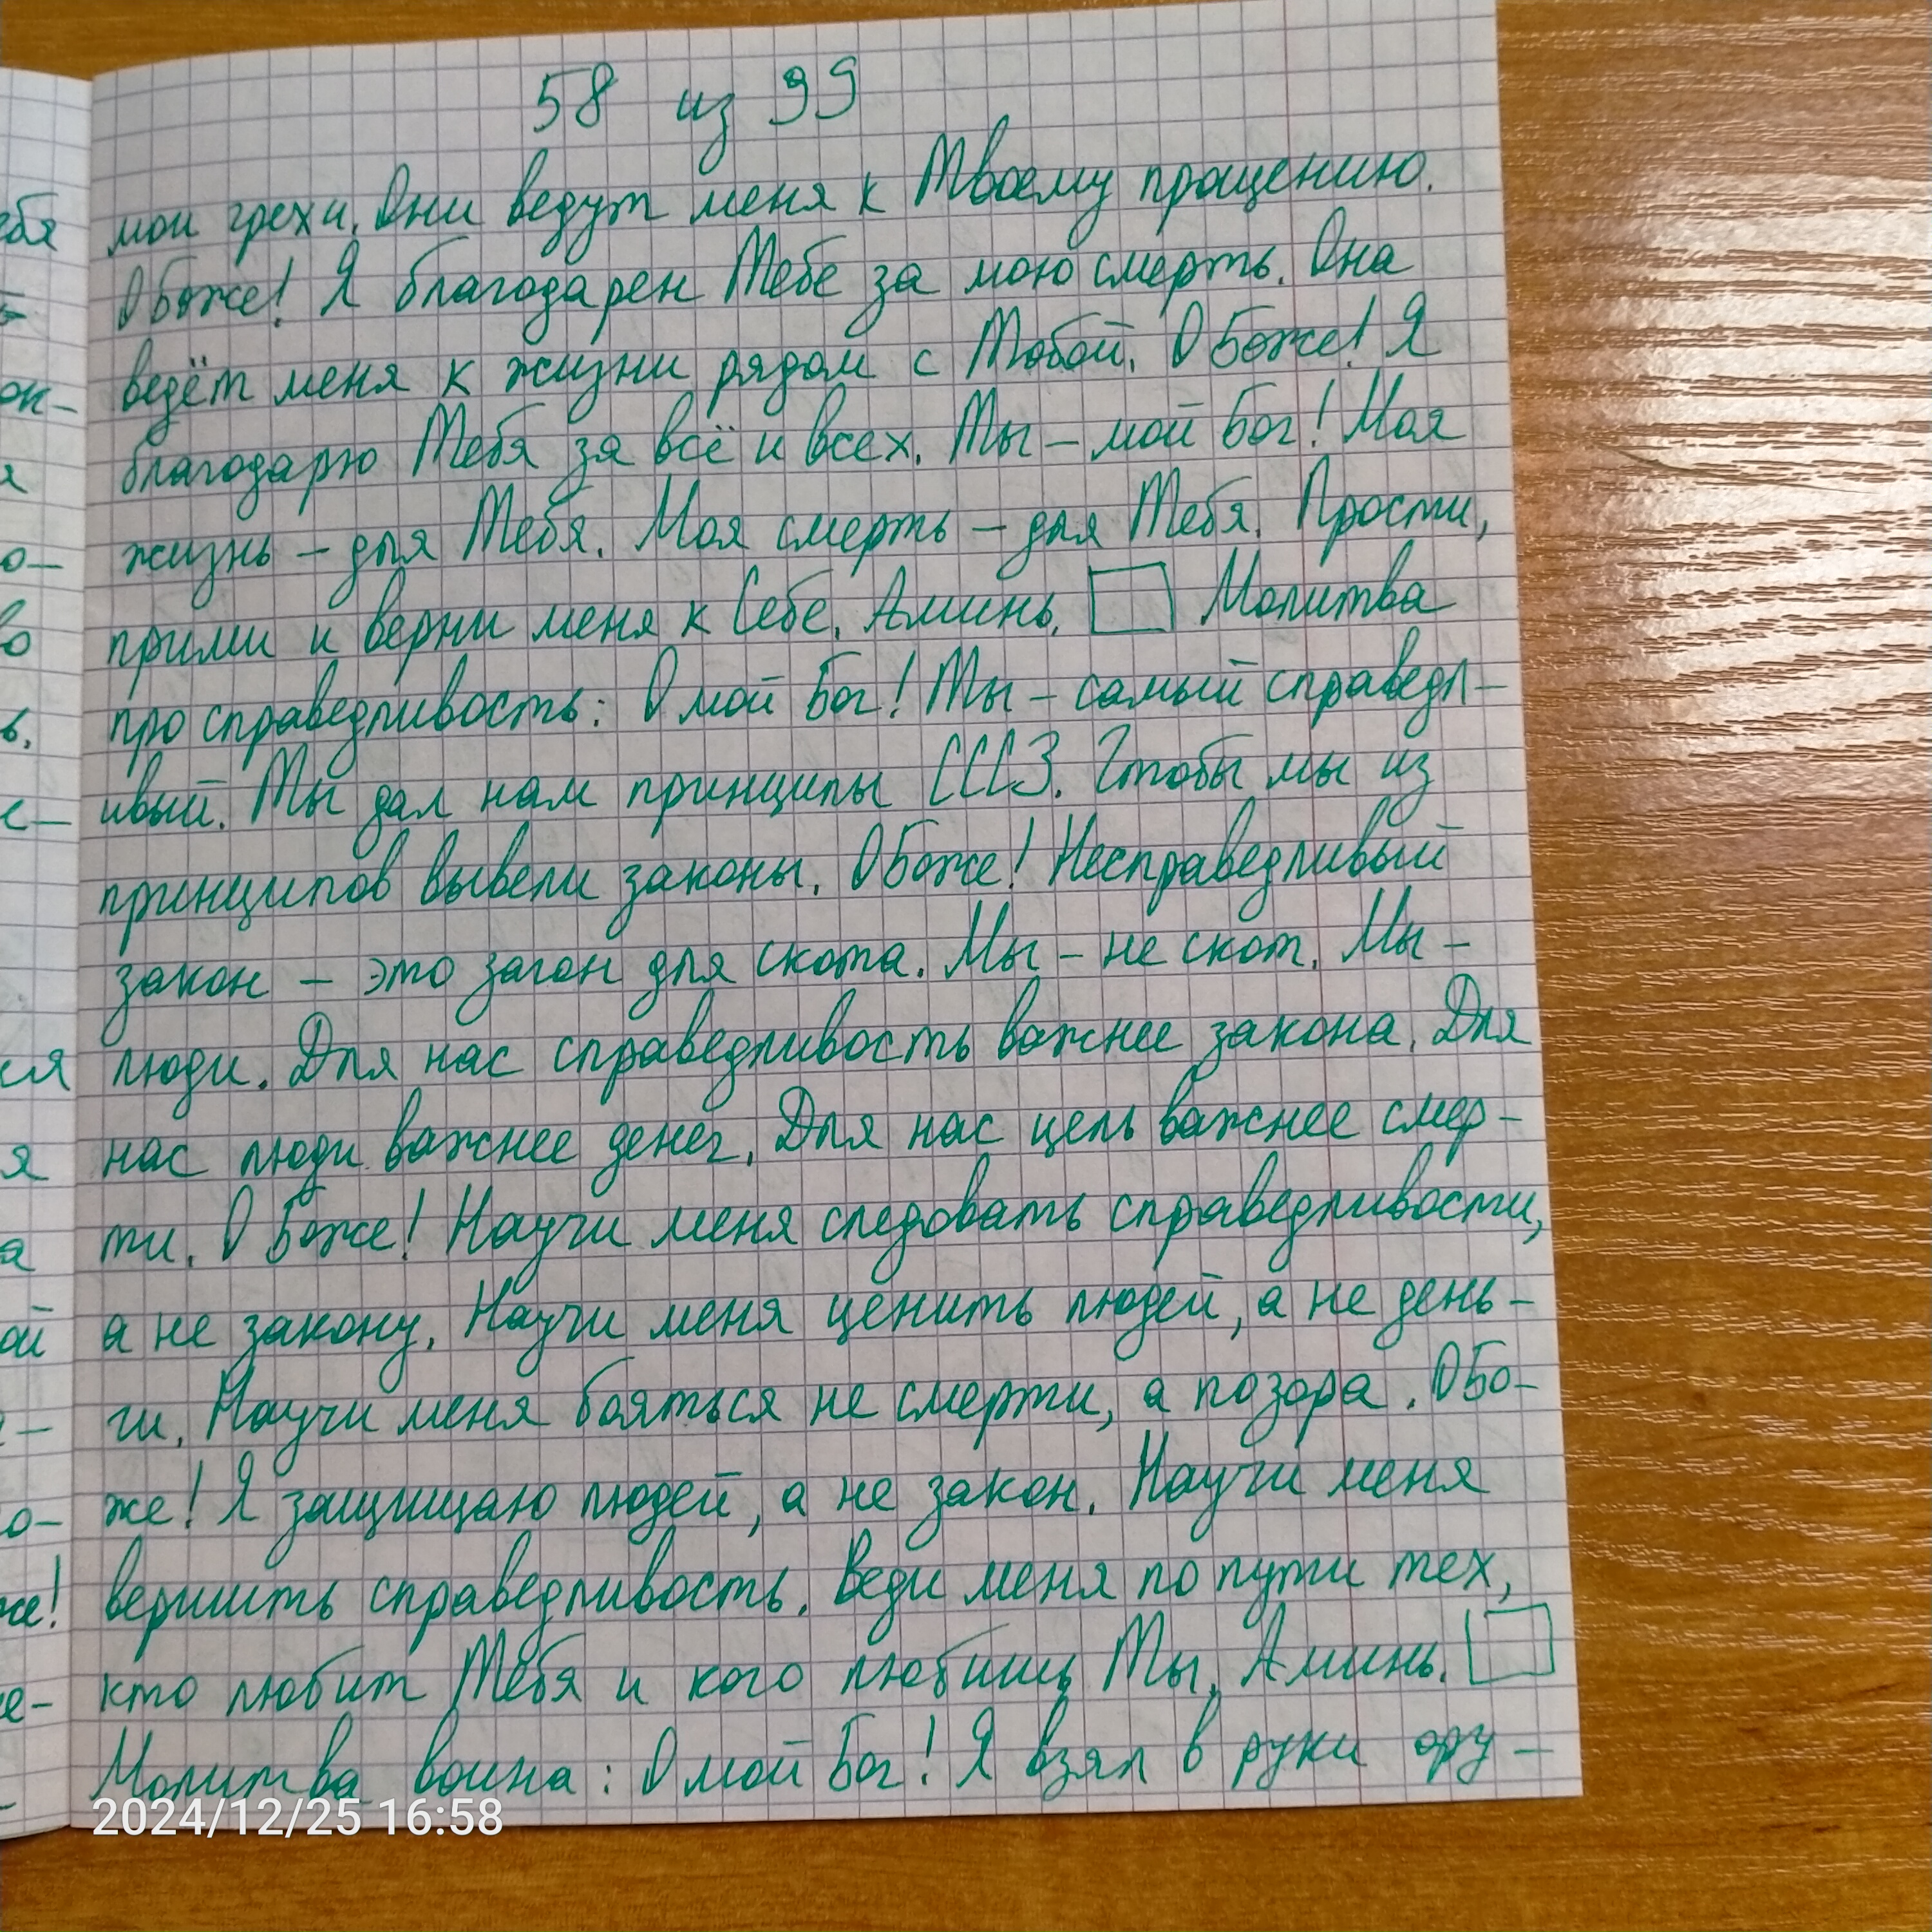 58 из 99
мои грехи. Они ведут меня к Твоему прощению.
О Боже! Я благодарен Тебе за мою смерть. Она
ведёт меня к жизни рядом с Тобой. О Боже! Я
благодарю Тебя за всё и всех. Ты – мой Бог! Моя
жизнь – для Тебя. Моя смерть – для Тебя. Прости,
прими и верни меня к Себе. Аминь. □ Молитва
про справедливость: О мой Бог! Ты – самый справедл-
ивый. Ты дал нам принципы СССЗ. Чтобы мы из
принципов вывели законы. О Боже! Несправедливый
закон – это загон для скота. Мы – не скот. Мы –
люди. Для нас справедливость важнее закона. Для
нас люди важнее денег. Для нас цель важнее смер-
ти. О Боже! Научи меня следовать справедливости,
а не закону. Научи меня ценить людей, а не день-
ги. Научи меня бояться не смерти, а позора. О Бо-
же! Я защищаю людей, а не закон. Научи меня
вершить справедливость. Веди меня по пути тех,
кто любит Тебя и кого любишь Ты. Аминь. □
Молитва воина: О мой Бог! Я взял в руки ору-
2024/12/25 16:58